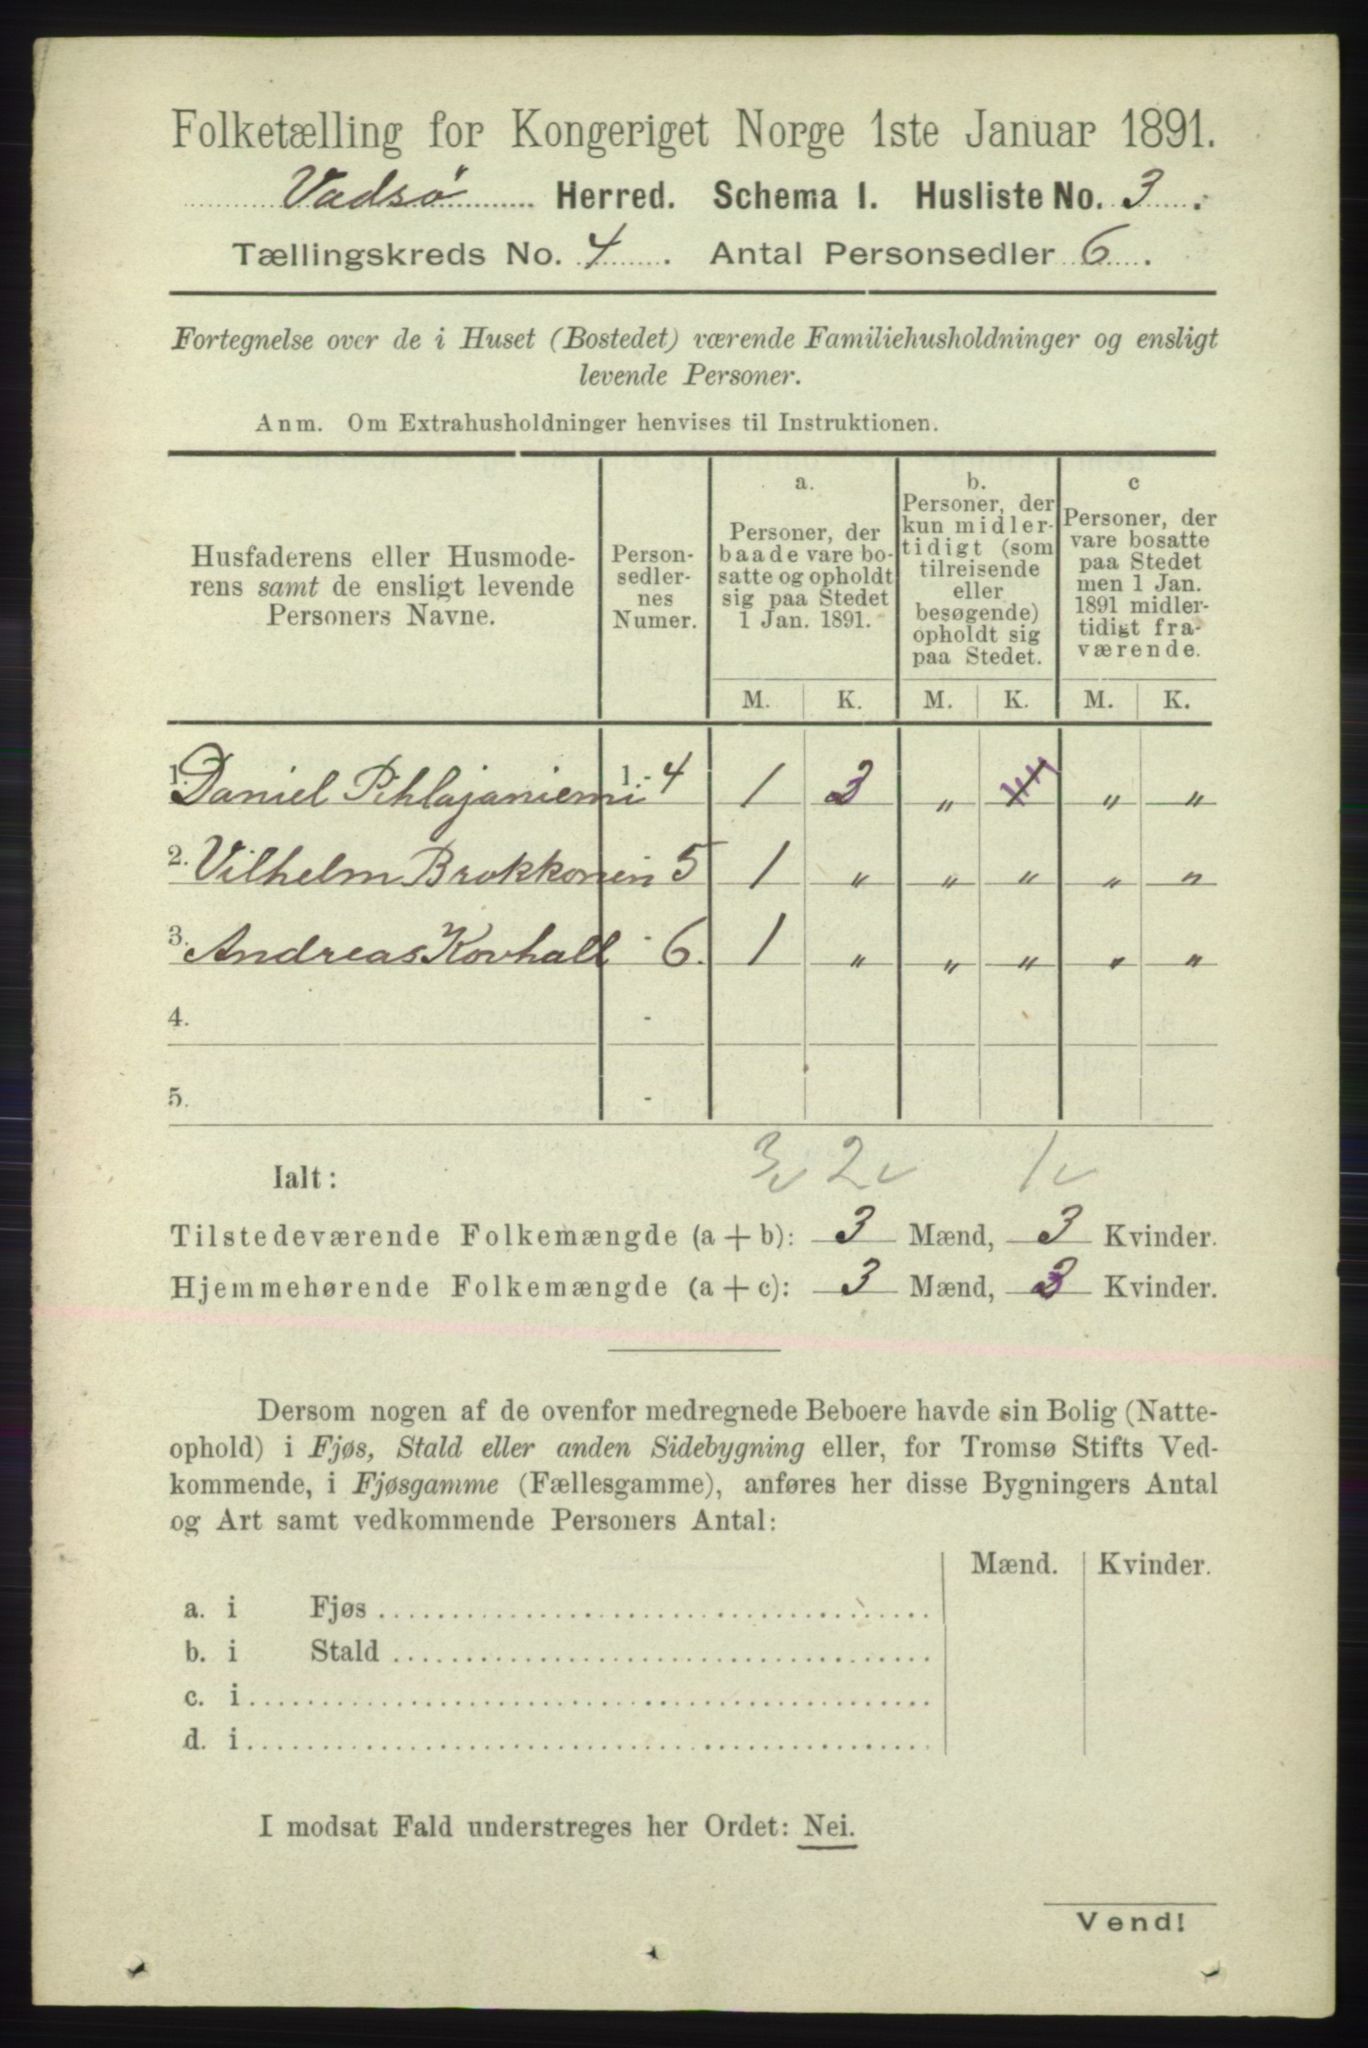 Folketælling for Kongeriget Norge 1ste Januar 1891.
Vadsø Herred. Schema I. Husliste No. 3.
Tællingskreds No. 4. Antal Personsedler 6.
Fortegnelse over de i Huset (Bostedet) værende Familiehusholdninger og ensligt
levende Personer.
Anm. Om Extrahusholdninger henvises til Instruktionen.
Husfaderens eller Husmode-
rens samt de ensligt levende
Personers Navne.
Person-
sedler-
nes
Numer.
a.
Personer, der
baade vare bo-
satte og opholdt
sig paa Stedet
1 Jan. 1891.
b.
Personer, der
kun midler-
tidigt (som
tilreisende
eller
besøgende)
opholdt sig
paa Stedet.
c
Personer, der
vare bosatte
paa Stedet
men 1 Jan.
1891 midler-
tidigt fra-
værende.
M. K. M. K. M. K.
1. Daniel Pihlajaniemi 1.-4 1 3 „ 1 „ „
2. Vilhelm Brokkonen 5 1 „ „ „ „ „
3. Andreas Kovhall - 6. 1 „ „ „ „ „
4. -
5. -
Ialt: 3 2 1
Tilstedeværende Folkemængde (a + b): 3 Mænd, 3 Kvinder.
Hjemmehørende Folkemængde (a + c): 3 Mænd, 3 Kvinder.
Dersom nogen af de ovenfor medregnede Beboere havde sin Bolig (Natte-
ophold) i Fjøs, Stald eller anden Sidebygning eller, for Tromsø Stifts Ved-
kommende, i Fjøsgamme (Fællesgamme), anføres her disse Bygningers Antal
og Art samt vedkommende Personers Antal:
Mænd. Kvinder.
a. i Fjøs
b. i Stald
c. i
d. i
I modsat Fald understreges her Ordet: Nei.
Vend!